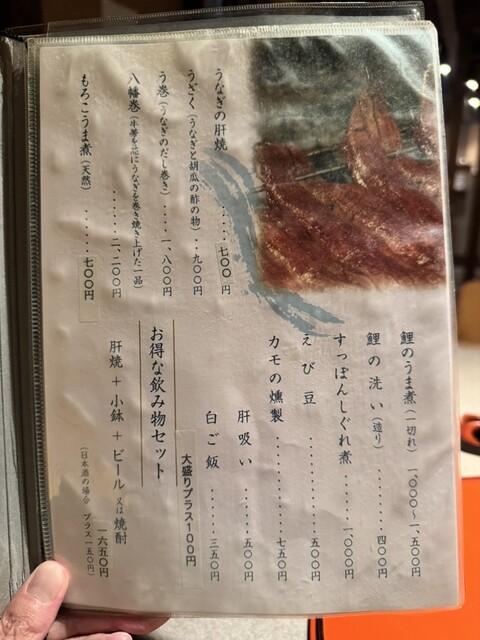 うなぎの肝焼 ・・・・・ 七〇〇円
うざく（うなぎと胡瓜の酢の物）・・・九〇〇円
う巻（うなぎのだし巻き）・・・・・一、八〇〇円
八幡巻（牛蒡を芯にうなぎを巻き焼き上げた一品）
・・・・・・・二、二〇〇円
もろこうま煮（天然）・・・・・・七〇〇円
鯉のうま煮（一切れ）一、〇〇〇〜一、五〇〇円
鯉の洗い（造り）・・・・・・・四〇〇円
すっぽんしぐれ煮・・・・・一、〇〇〇円
えび豆・・・・・・・・・五〇〇円
カモの燻製・・・・・・・七五〇円
肝吸い・・・・・・五〇〇円
白ご飯・・・・・・三五〇円
大盛りプラス１００円
お得な飲み物セット
肝焼＋小鉢＋ビール又は焼酎
一六五〇円
（日本酒の場合 プラス一五〇円）